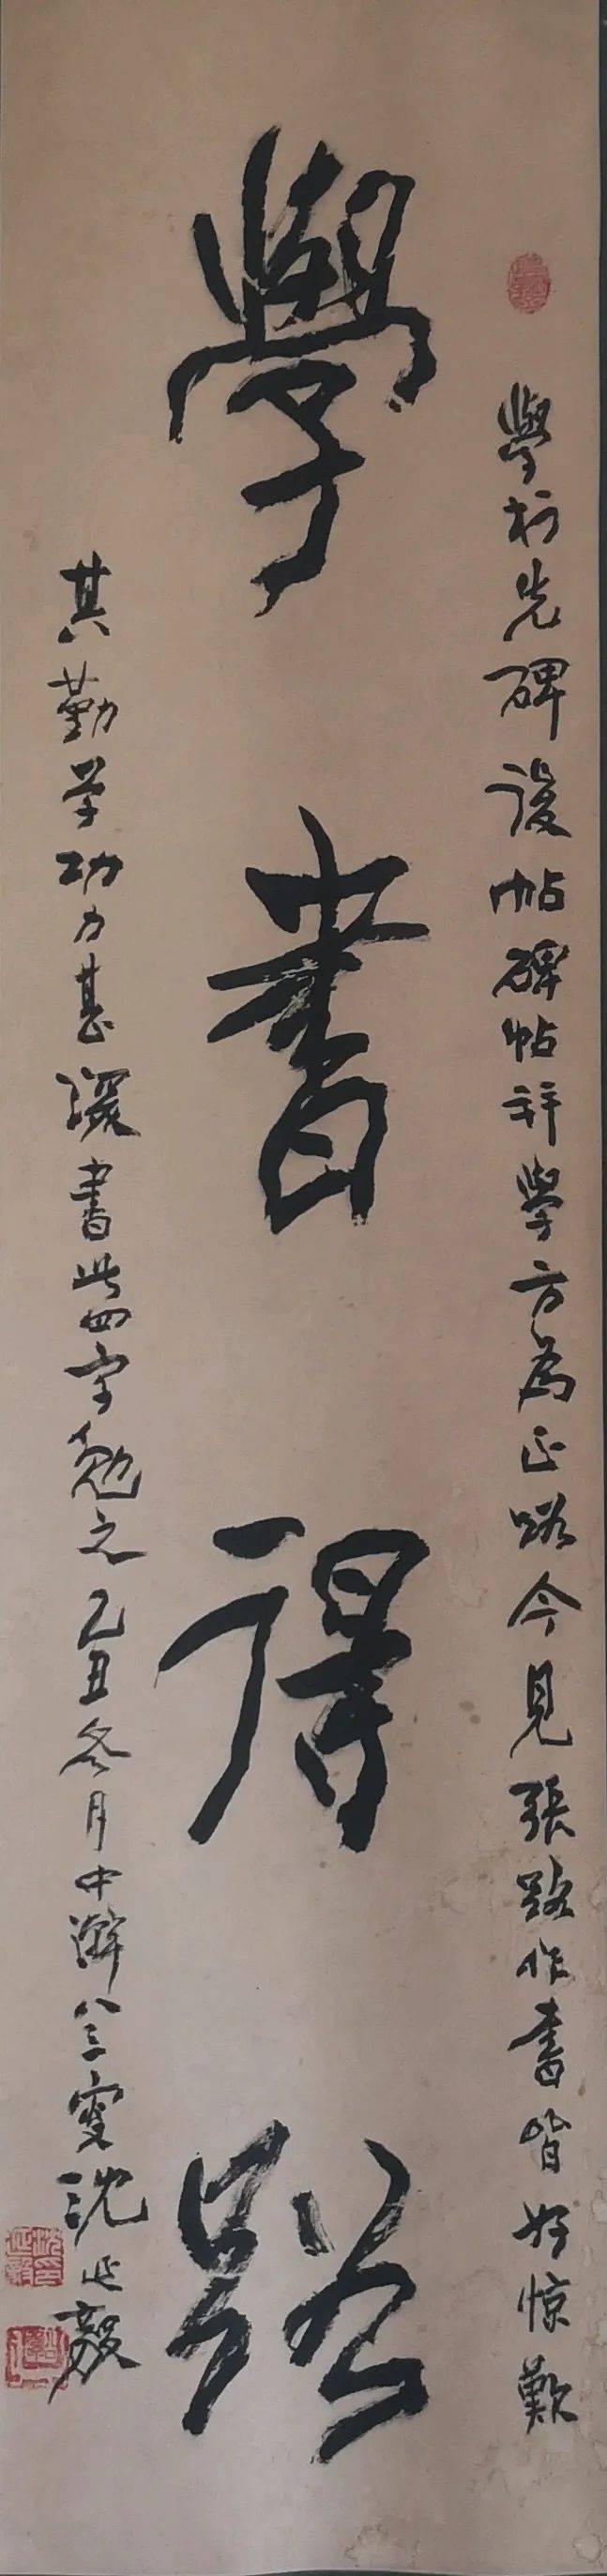 學書得路
學於先碑後帖碑帖并學方為正路今見張路作書皆好惊歎
其勤学功力甚深書此四字勉之乙丑冬月中澣八三叟沈延毅